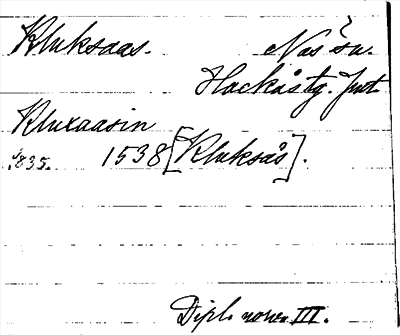 Kluksaas. Näs sn.
Hackås tg. Jmt
Kluxaasin
s. 835. 1538 [Kluksås].
Dipl. norv. III.